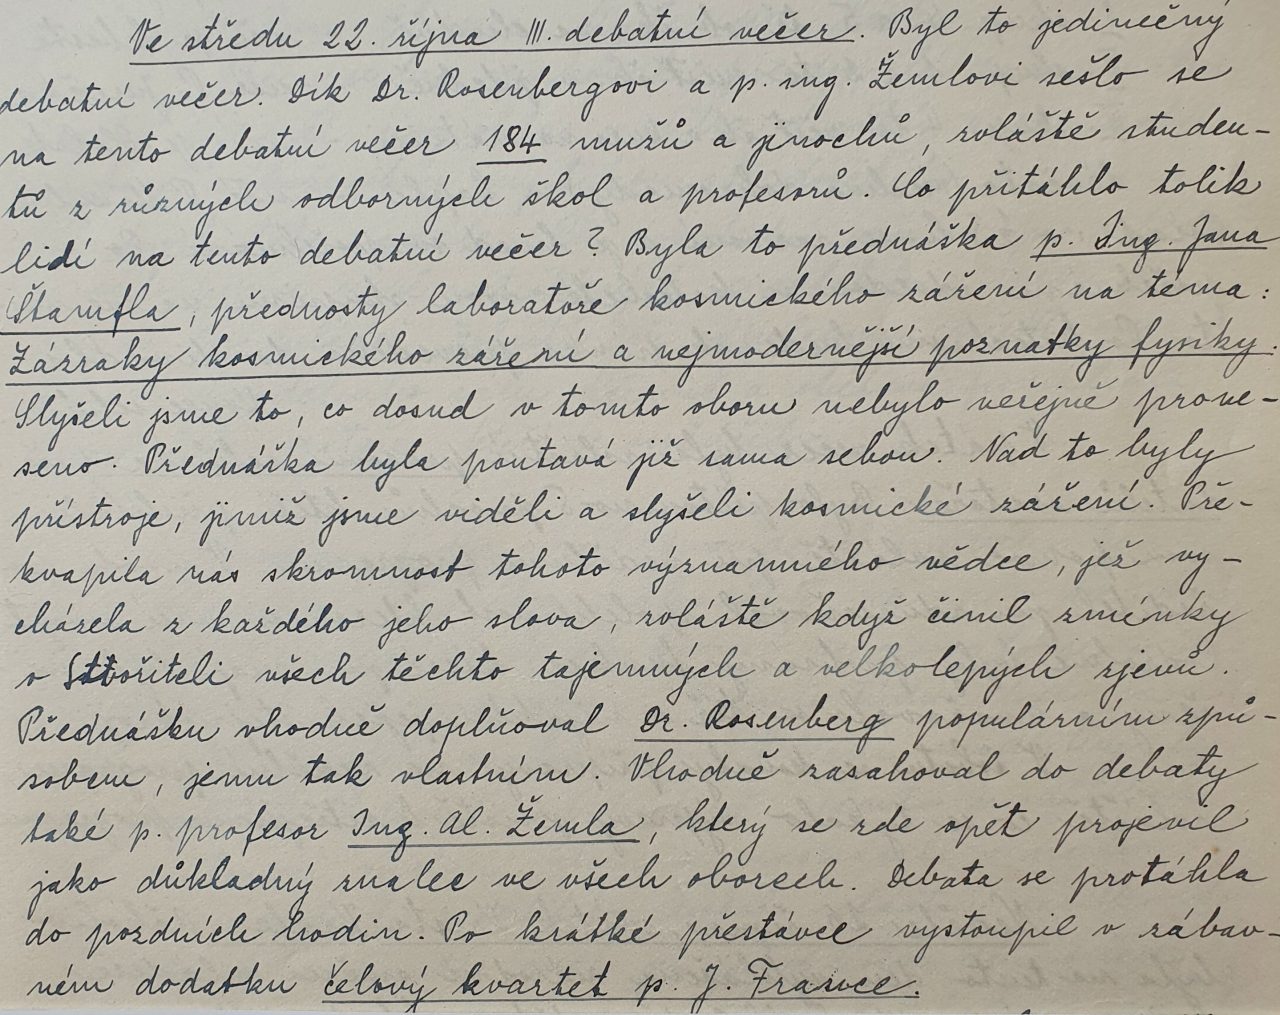 Ve středu 22. října III. debatní večer. Byl to jedinečný
debatní večer. Dík Dr. Rosenbergovi a p. ing. Žemlovi sešlo se
na tento debatní večer 184 mužů a jinochů, zvláště studen-
tů z různých odborných škol a profesorů. Co přitáhlo tolik
lidí na tento debatní večer? Byla to přednáška p. Ing. Jana
Štamfla, přednosty laboratoře kosmického záření na téma:
Zázraky kosmického záření a nejmodernější poznatky fysiky.
Slyšeli jsme to, co dosud v tomto oboru nebylo veřejně prone-
seno. Přednáška byla poutavá již sama sebou. Nad to byly
přístroje, jimiž jsme viděli a slyšeli kosmické záření. Pře-
kvapila nás skromnost tohoto významného vědce, jež vy-
cházela z každého jeho slova, zvláště když činil zmínky
o Stvořiteli všech těchto tajemných a velkolepých zjevů.
Přednášku vhodně doplňoval Dr. Rosenberg populárním způ-
sobem, jemu tak vlastním. Vhodně zasahoval do debaty
také p. profesor Ing. Al. Žemla, který se zde opět projevil
jako důkladný znalec ve všech oborech. Debata se protáhla
do pozdních hodin. Po krátké přestávce vystoupil v zábav-
ném dodatku čelový kvartet p. J. France.